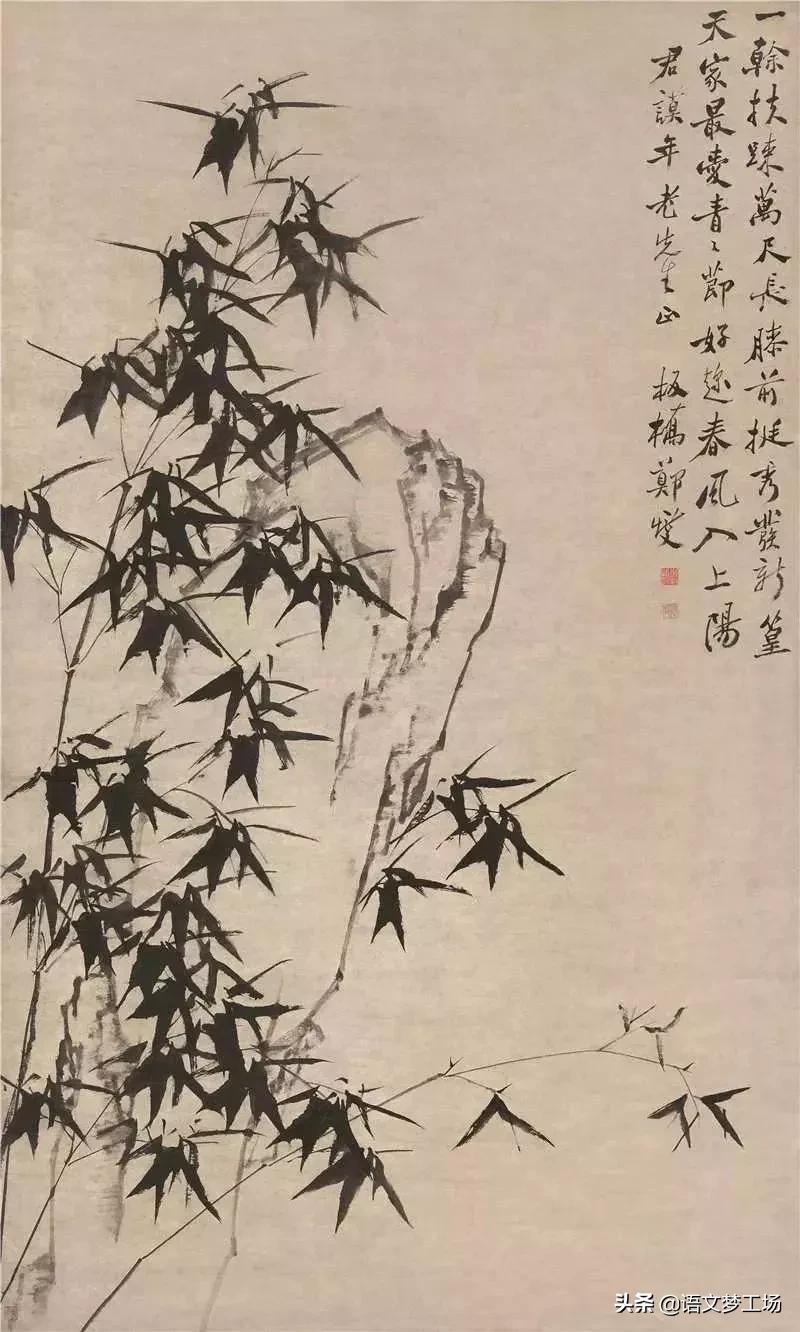 一榦扶疎萬尺長膝前挺秀發新篁
天家最愛青〻節好趁春風入上陽
君謨年老先生正 板橋鄭燮
头条 @语文梦工场